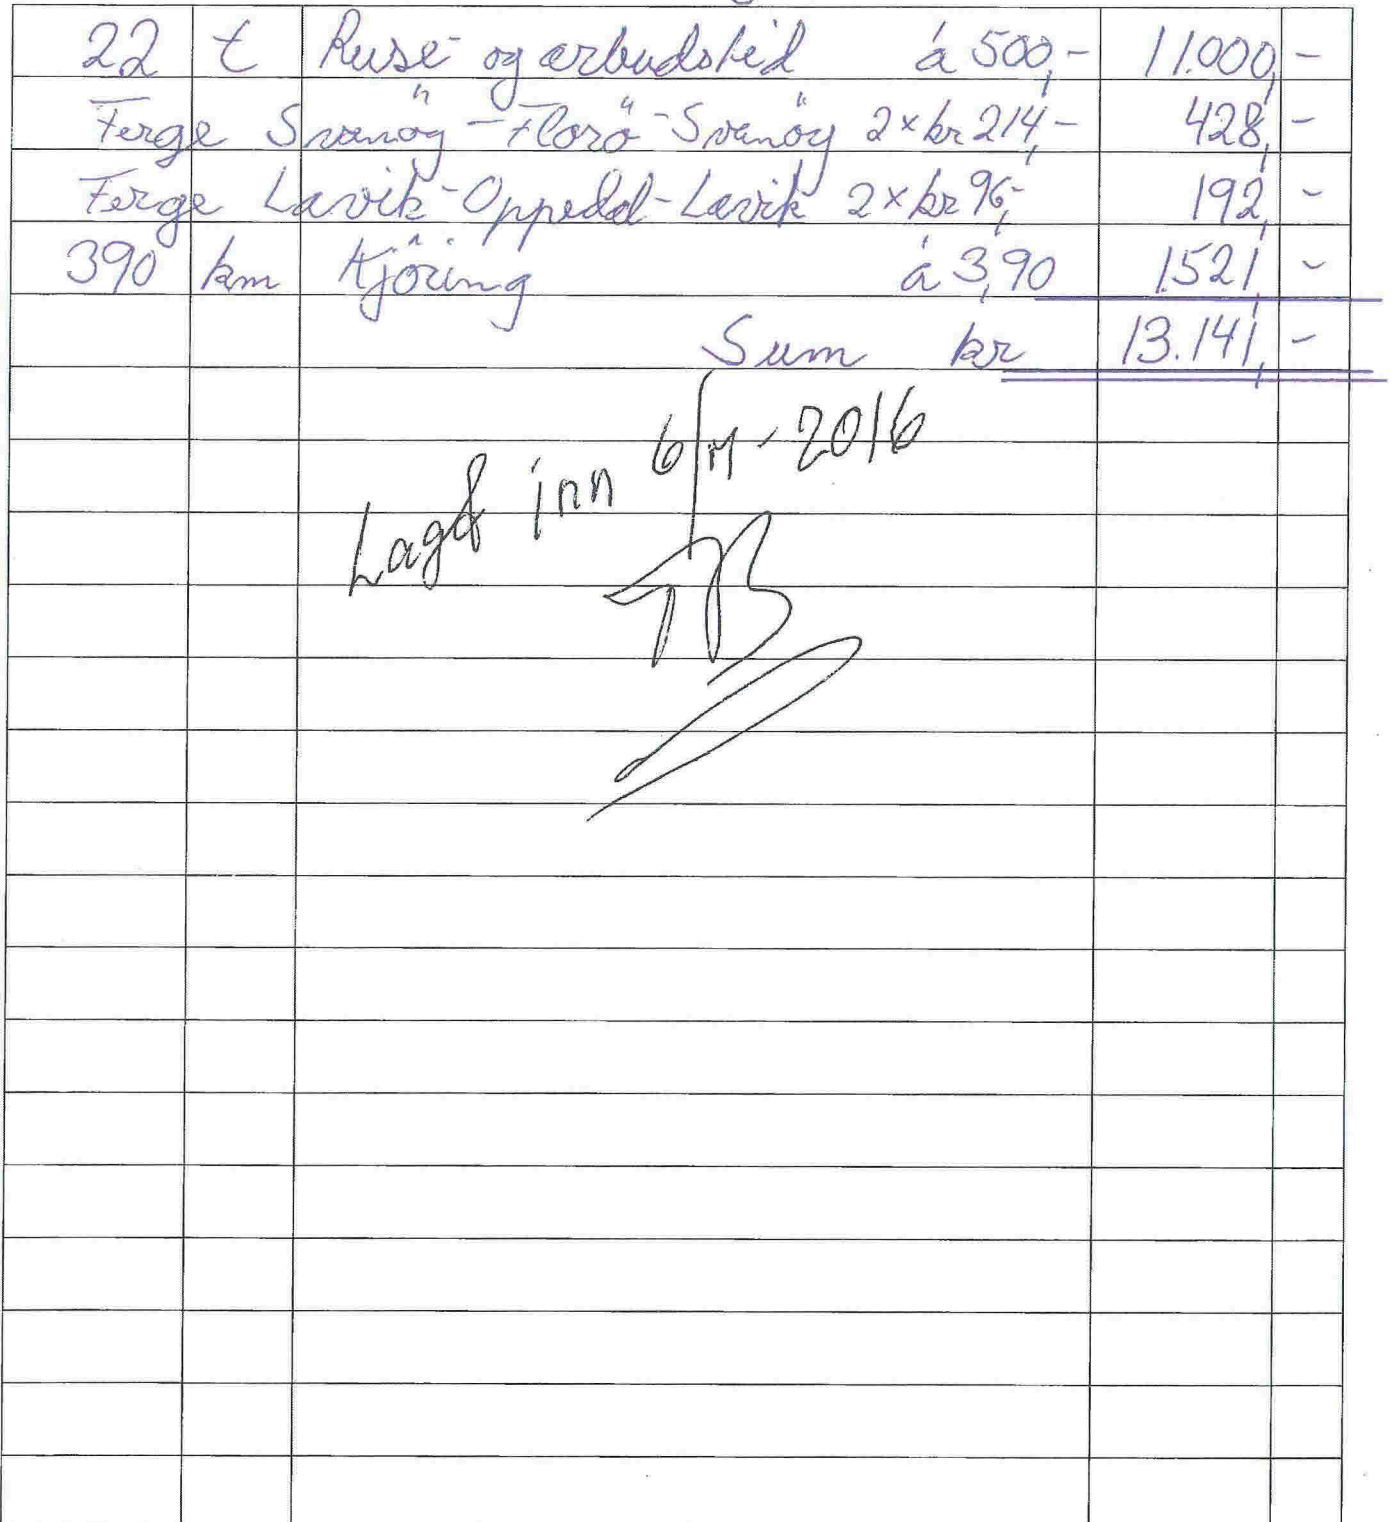 22 t Reise og arbeidstid á 500,- 11.000,-
Ferge Svanöy-Florö-Svanöy 2×kr 214,- 428,-
Ferge Lavik-Oppedal-Lavik 2×kr 96,- 192,-
390 km Kjöring á 3,90 1521,-
Sum kr 13.141,-
Lagt inn 6/11-2016